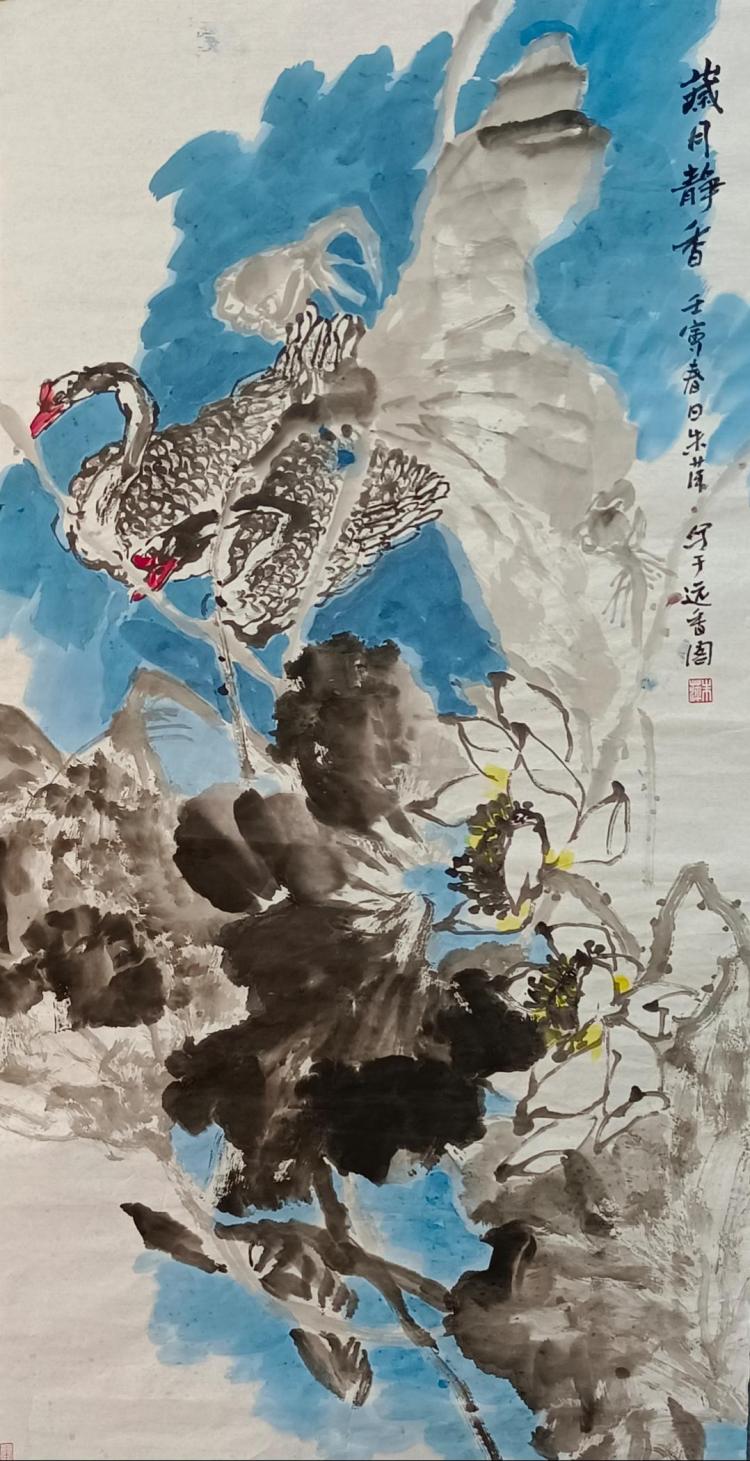 歲月静香 壬寅春日朱萍写于远香阁